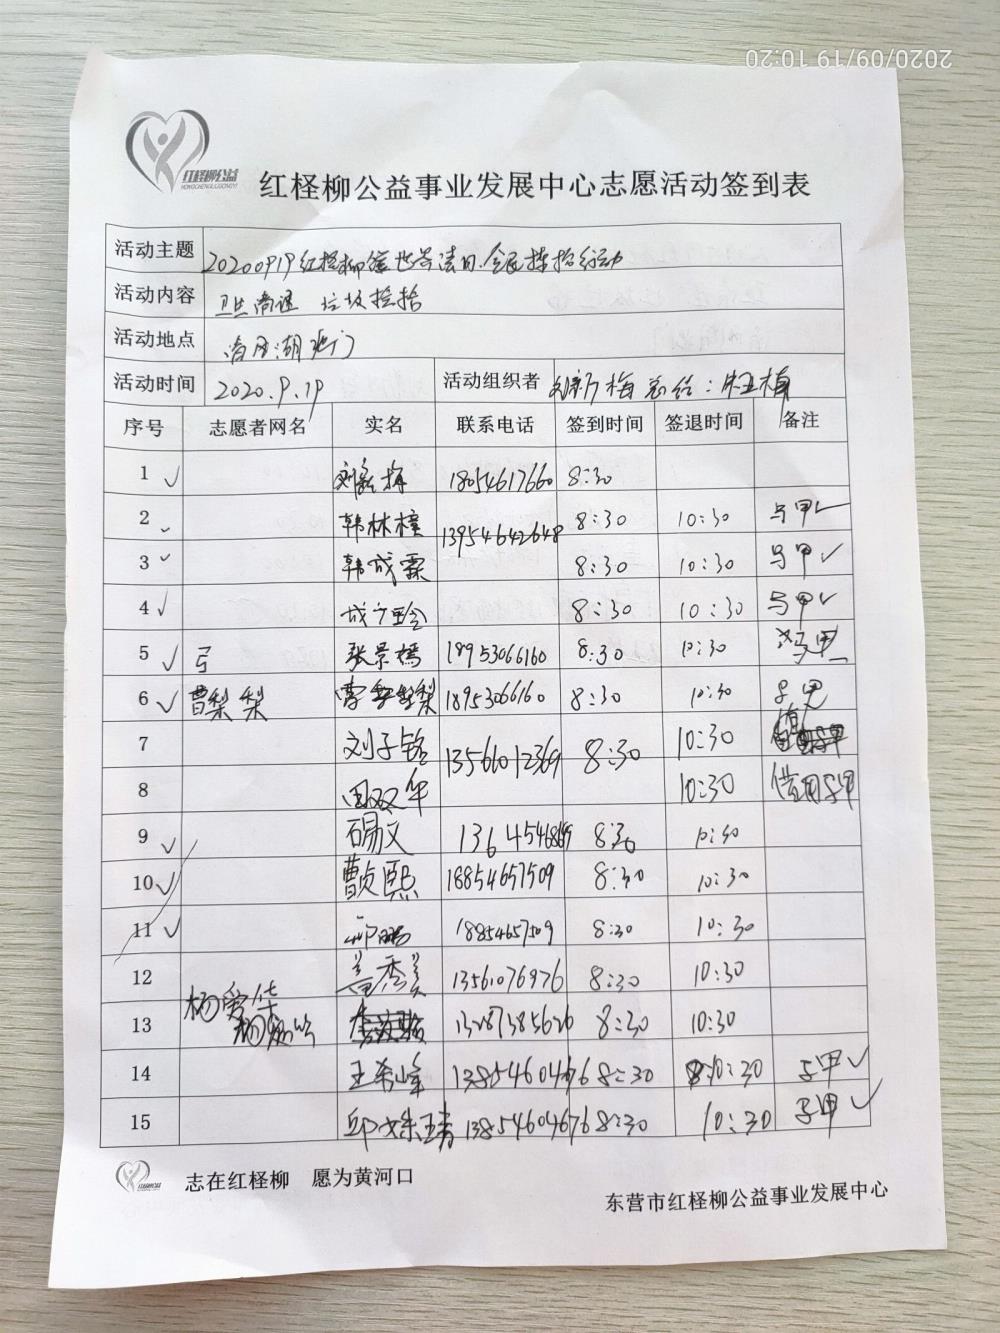 2020/09/19 10:20
红柽柳公益
HONGCHENGLIUGONGYI
红柽柳公益事业发展中心志愿活动签到表
活动主题 20200919红柽柳 世界清洁日.全民 行动
活动内容 卫生清理 垃圾捡拾
活动地点 清风湖 门
活动时间 2020.9.19 活动组织者 刘新梅 总结:
序号 志愿者网名 实名 联系电话 签到时间 签退时间 备注
1 刘新梅 18054617660 8:30
2 韩林樟 13954642648 8:30 10:30 马甲
3 韩成霖 8:30 10:30 马甲
4 成广玲 8:30 10:30 马甲
5 弓 张景嫣 18953066160 8:30 10:30 马甲
6 曹梨梨 曹梨梨 18953066160 8:30 10:30 马甲
7 刘子铭 13561012369 8:30 10:30
8 田双年 10:30 借用马甲
9 8:30 10:30
10 曹贞熙 18854657509 8:30 10:30
11 祁鹏 18854657509 8:30 10:30
12 黄秀美 13561076976 8:30 10:30
13 杨爱华 13287385626 8:30 10:30
14 王希峰 13854604676 8:30 10:30 马甲
15 邱 13854604676 8:30 10:30 马甲
志在红柽柳 愿为黄河口
东营市红柽柳公益事业发展中心